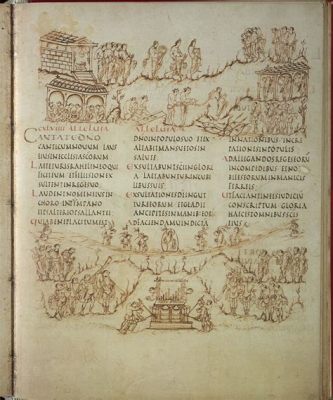 ALLELUIA
CANTATE DNO
CANTICUM NOUUM LAUS
EIUS IN ECCLESIA SCORUM
LAETETUR ISRAHEL IN EO QUI
FECIT EUM ET FILII SION EX
ULTENT IN REGE SUO
LAUDENT NOMEN EIUS IN
CHORO IN TYMPANO
ET PSALTERIO PSALLANT EI
QUIA BENEPLACITUM EST
DNO IN POPULO SUO ET EX
ALTABIT MANSUETOS IN
SALUTE
EXULTABUNT SCI IN GLORIA
LAETABUNTUR IN CUBI
LIBUS SUIS
EXULTATIONES DI IN GUT
TURE EORUM ET GLADII
ANCIPITES IN MANIB EOR
AD FACIENDAM UINDICTA
IN NATIONIBUS INCRE
PATIONES IN POPULIS
AD ALLIGANDOS REGES EORU
IN COMPEDIBUS ET NO
BILES EORUM IN MANICIS
FERREIS
UT FACIANT IN EIS IUDICIU
CONSCRIPTUM GLORIA
HAEC EST OMNIBUS SCIS
EIUS